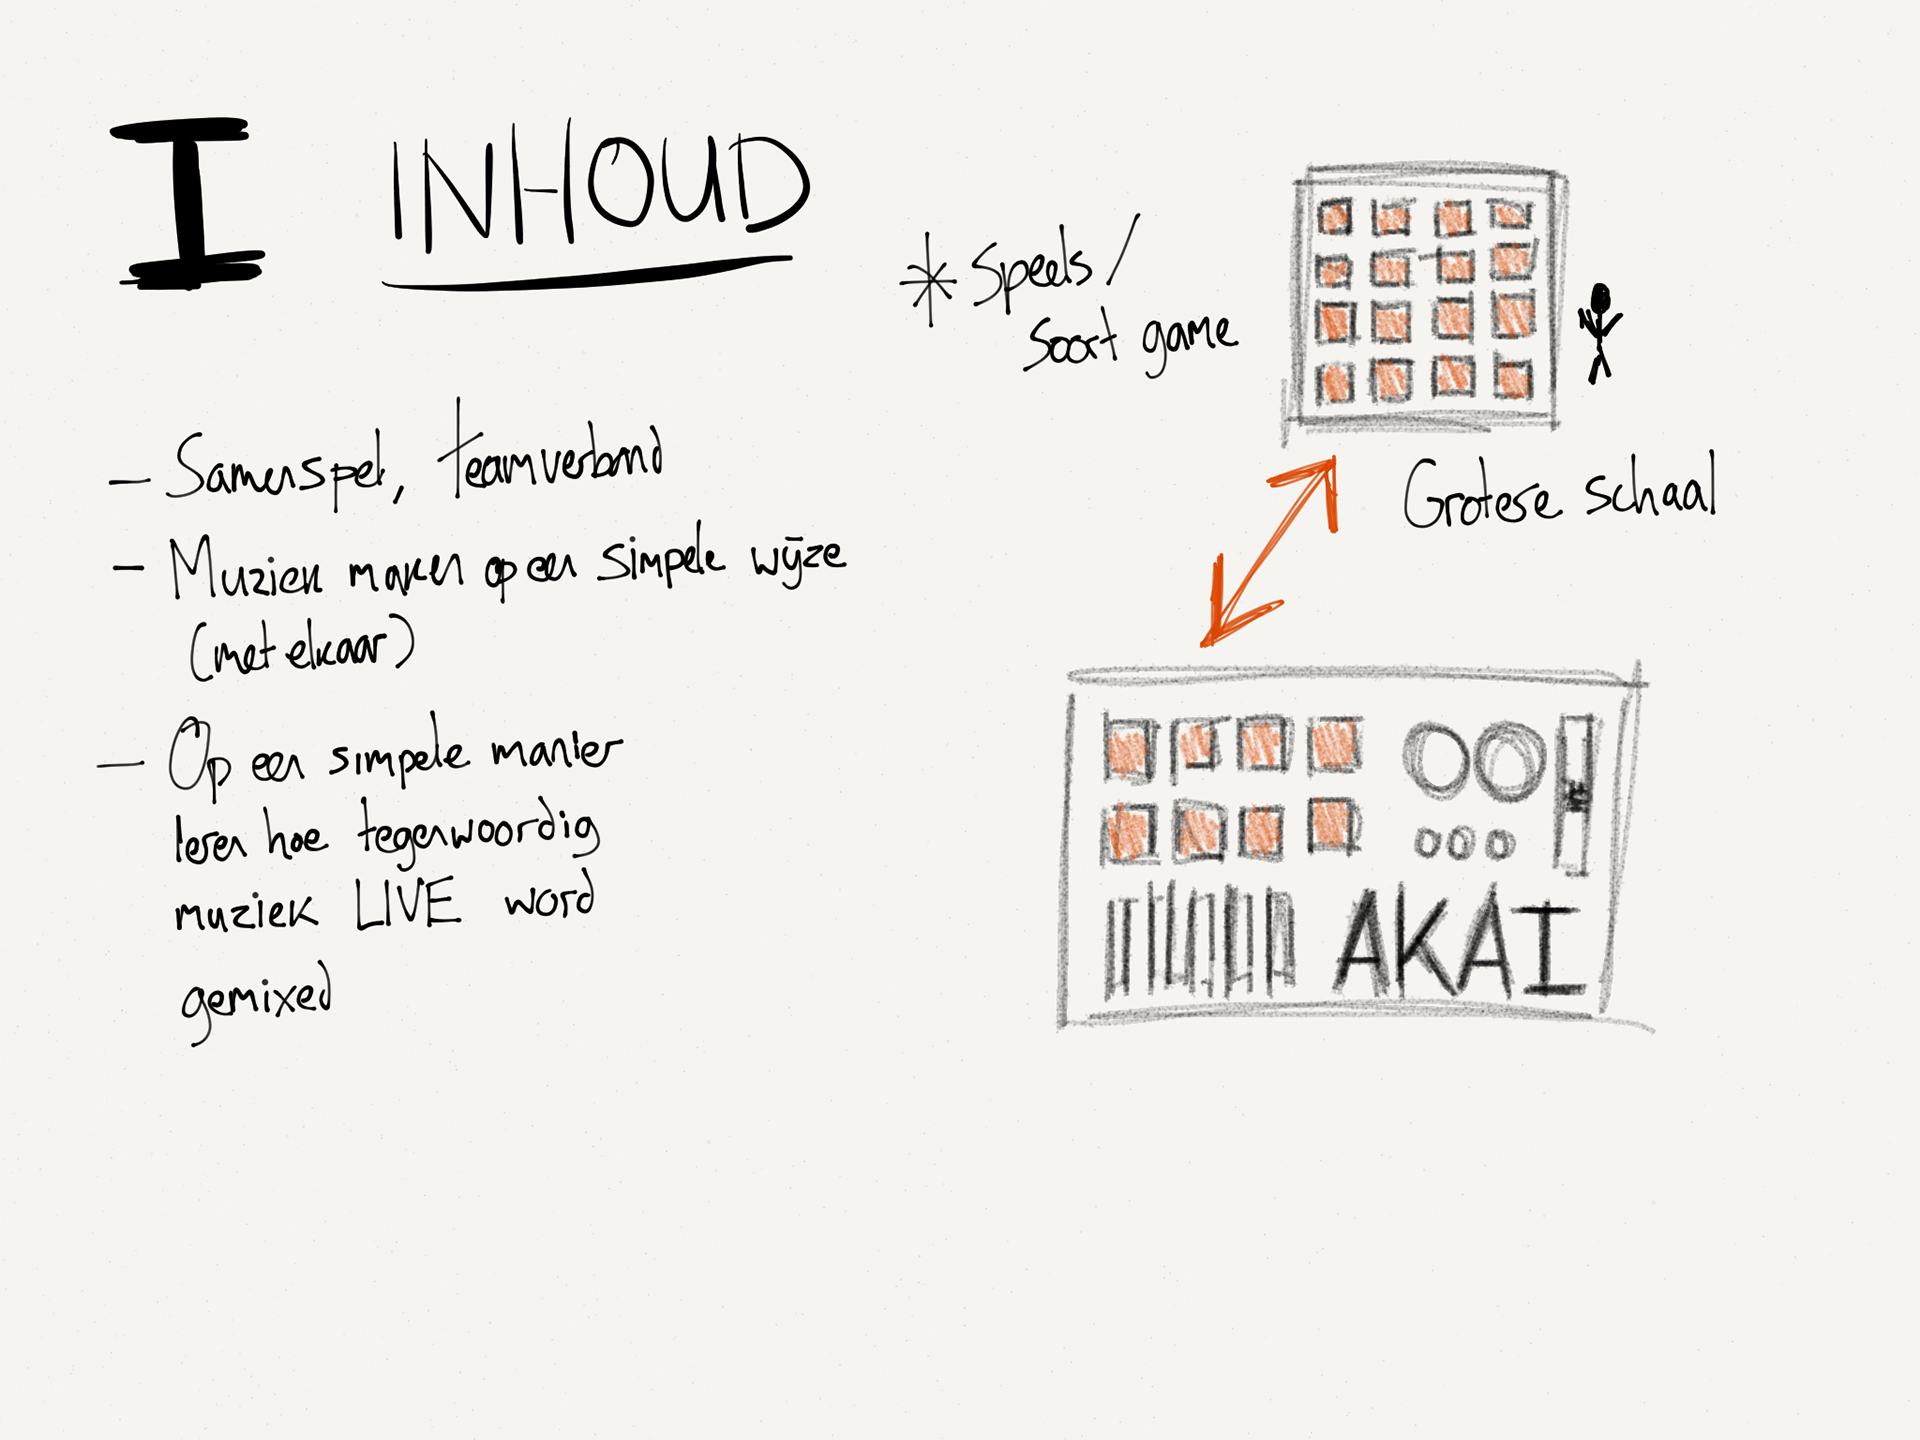 I INHOUD
- Samenspel, teamverband
- Muziek maken op een simpele wijze
(met elkaar)
- Op een simpele manier
leren hoe tegenwoordig
muziek LIVE word
gemixed
* Speels /
Soort game
Grotere schaal
AKAI